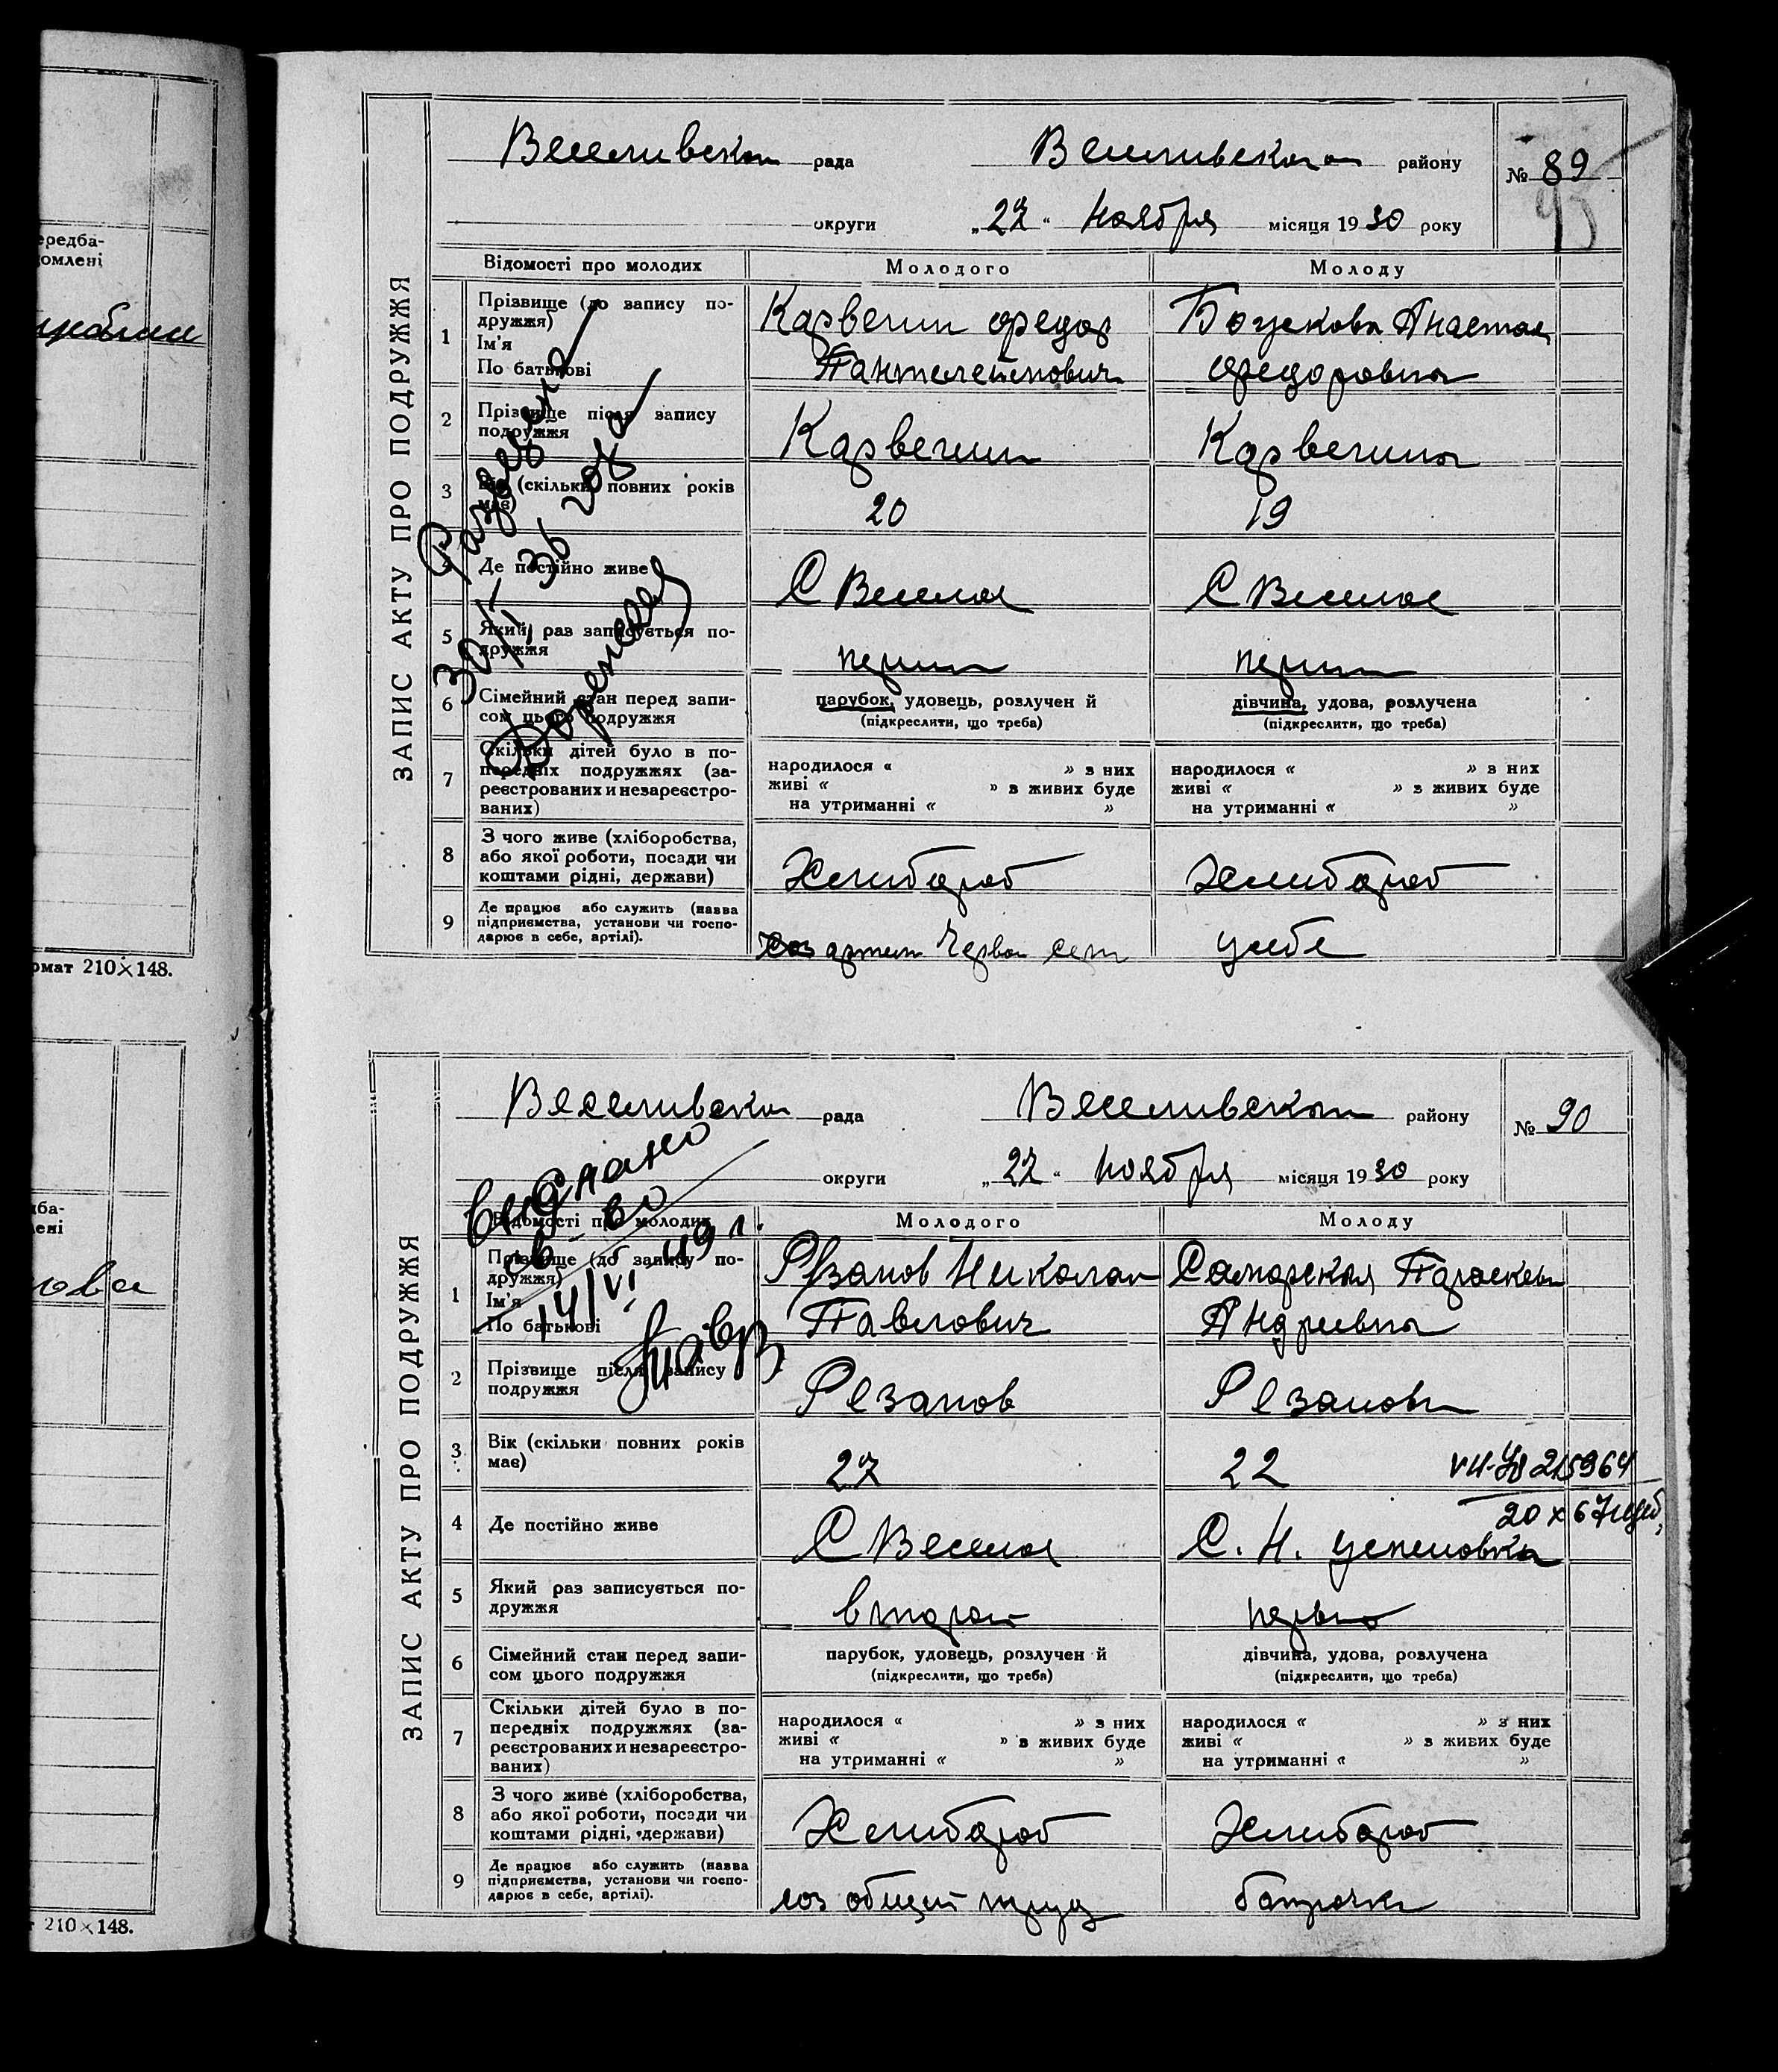 ередба-
омлені
омат 210×148.
ба-
ені
нова
210×148.
ЗАПИС АКТУ ПРО ПОДРУЖЖЯ
Веселивской рада Веселивского району № 89
95
округи „27“ Ноября місяця 1930 року
Відомості про молодих Молодого Молоду
1 Прізвище (до запису по-
дружжя)
Ім'я
По батькові
Карвечин Федор
Пантелеймонович
Божкова Анастас
Федоровна
2 Прізвище після запису
подружжя
Карвечин Карвечина
3 Вік (скільки повних років
має)
20 19
4 Де постійно живе С Веселое С Веселое
5 Який раз записується по-
дружжя
перши перши
6 Сімейний стан перед запи-
сом цього подружжя
парубок, удовець, розлучен й
(підкреслити, що треба)
дівчина, удова, розлучена
(підкреслити, що треба)
7 Скільки дітей було в по-
передніх подружжях (за-
реєстрованих и незареєстро-
ваних)
народилося “ ” з них
живі “ ” в живих буде
на утриманні “ ”
народилося “ ” з них
живі “ ” в живих буде
на утриманні “ ”
8 З чого живе (хліборобства,
або якої роботи, посади чи
коштами рідні, держави)
Хлибороб Хлибороб
9 Де працює або служить (назва
підприємства, установи чи госпо-
дарює в себе, артілі).
артел Червон сел
у себе
Разведена
36 года
ЗАПИС АКТУ ПРО ПОДРУЖЖЯ
Веселивска рада Веселивской району № 90
округи „27“ Ноября місяця 1930 року
Відомості про молодих Молодого Молоду
1 Прізвище (до запису по-
дружжя)
Ім'я
По батькові
Рязанов Николай
Павлович
Самарская Параскев
Андреевна
2 Прізвище після запису
подружжя
Резанов Резанова
3 Вік (скільки повних років
має)
27 22
215964
20 х 67
4 Де постійно живе С Веселое С. Н. Успеновка
5 Який раз записується по-
дружжя
второй перво
6 Сімейний стан перед запи-
сом цього подружжя
парубок, удовець, розлучен й
(підкреслити, що треба)
дівчина, удова, розлучена
(підкреслити, що треба)
7 Скільки дітей було в по-
передніх подружжях (за-
реєстрованих и незареєстро-
ваних)
народилося “ ” з них
живі “ ” в живих буде
на утриманні “ ”
народилося “ ” з них
живі “ ” в живих буде
на утриманні “ ”
8 З чого живе (хліборобства,
або якої роботи, посади чи
коштами рідні, держави)
Хлибороб Хлибороб
9 Де працює або служить (назва
підприємства, установи чи госпо-
дарює в себе, артілі).
соз общий труд
батрачка
св-во
14/VI 49 г.